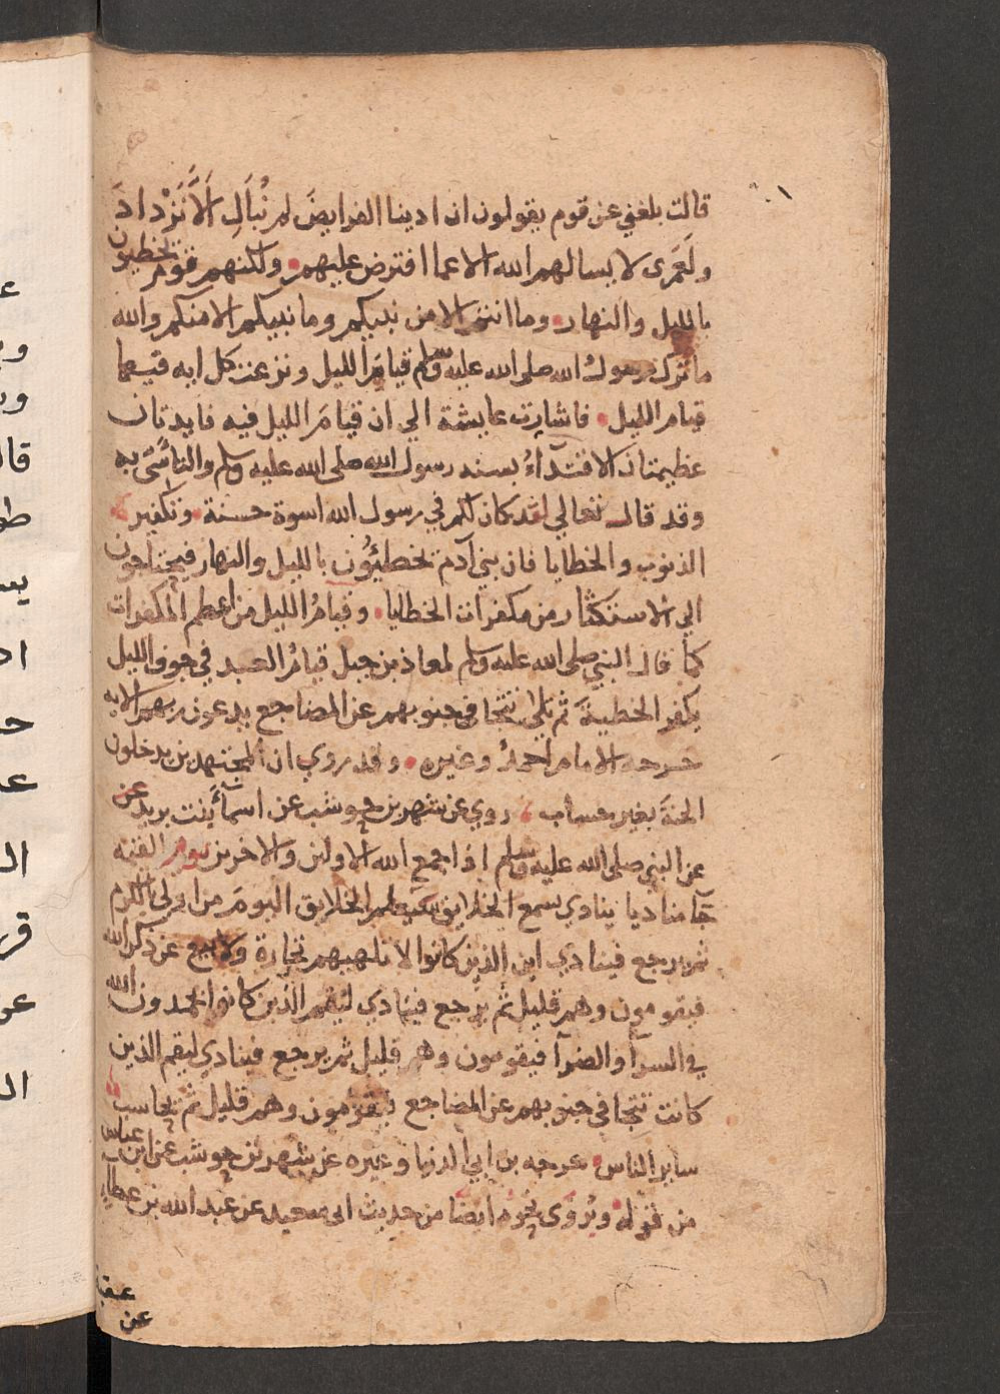 قالت بلغني عن قوم يقولون ان ادينا الفرايض لم نبال الا نزداد
ولعمري لا يسالهم الله الا عما افترض عليهم ولكنهم قوم يخطيون
بالليل والنهار وما انتم الا من نبيكم وما نبيكم الا منكم والله
ما ترك رسول الله صلى الله عليه وسلم قيام الليل ونزعت كل ايه فيها
قيام الليل فاشارت عايشة الي ان قيام الليل فيه فايدتان
عظيمتان الاقتدآء بسنه رسول الله صلى الله عليه وسلم والتاسي به
وقد قال تعالي لقد كان لكم في رسول الله اسوة حسنة وتكفير
الذنوب والخطايا فان بني آدم يخطيؤن بالليل والنهار فيحتاجون
الي الاستكثار من مكفرات الخطايا وقيام الليل من اعظم المكفرات
كما قال النبي صلى الله عليه وسلم لمعاذ بن جبل قيام العبد في جوف الليل
يكفر الخطية ثم تلا تتجافي جنوبهم عن المضاجع يدعون ربهم الايه
خرجه الامام احمد وغيره وقد روي ان المجتهدين يدخلون
الجنة بغير حساب روي عن شهر بن حوشب عن اسمآ بنت يزيد
عن النبي صلى الله عليه وسلم اذا جمع الله الاولين والاخرين يوم القيمه
جآ مناديا ينادي يسمع الخلايق سيعلم الخلايق اليوم من اولي بالكرم
ثم يرجع فينادي اين الذين كانوا لا تلهيهم تجارة ولا بيع عن ذكر الله
فيقومون وهم قليل ثم يرجع فينادي ليقم الذين كانوا يحمدون الله
في السرآ والضرآ فيقومون وهم قليل ثم يرجع فينادي ليقم الذين
كانت تتجافي جنوبهم عن المضاجع فيقومون وهم قليل ثم يحاسب
ساير الناس خرجه بن ابي الدنيا وغيره عن شهر بن حوشب عن ابن عباس
من قوله ويروى نحوه ايضا من حديث ابي عن عبد الله بن عطاء
عن